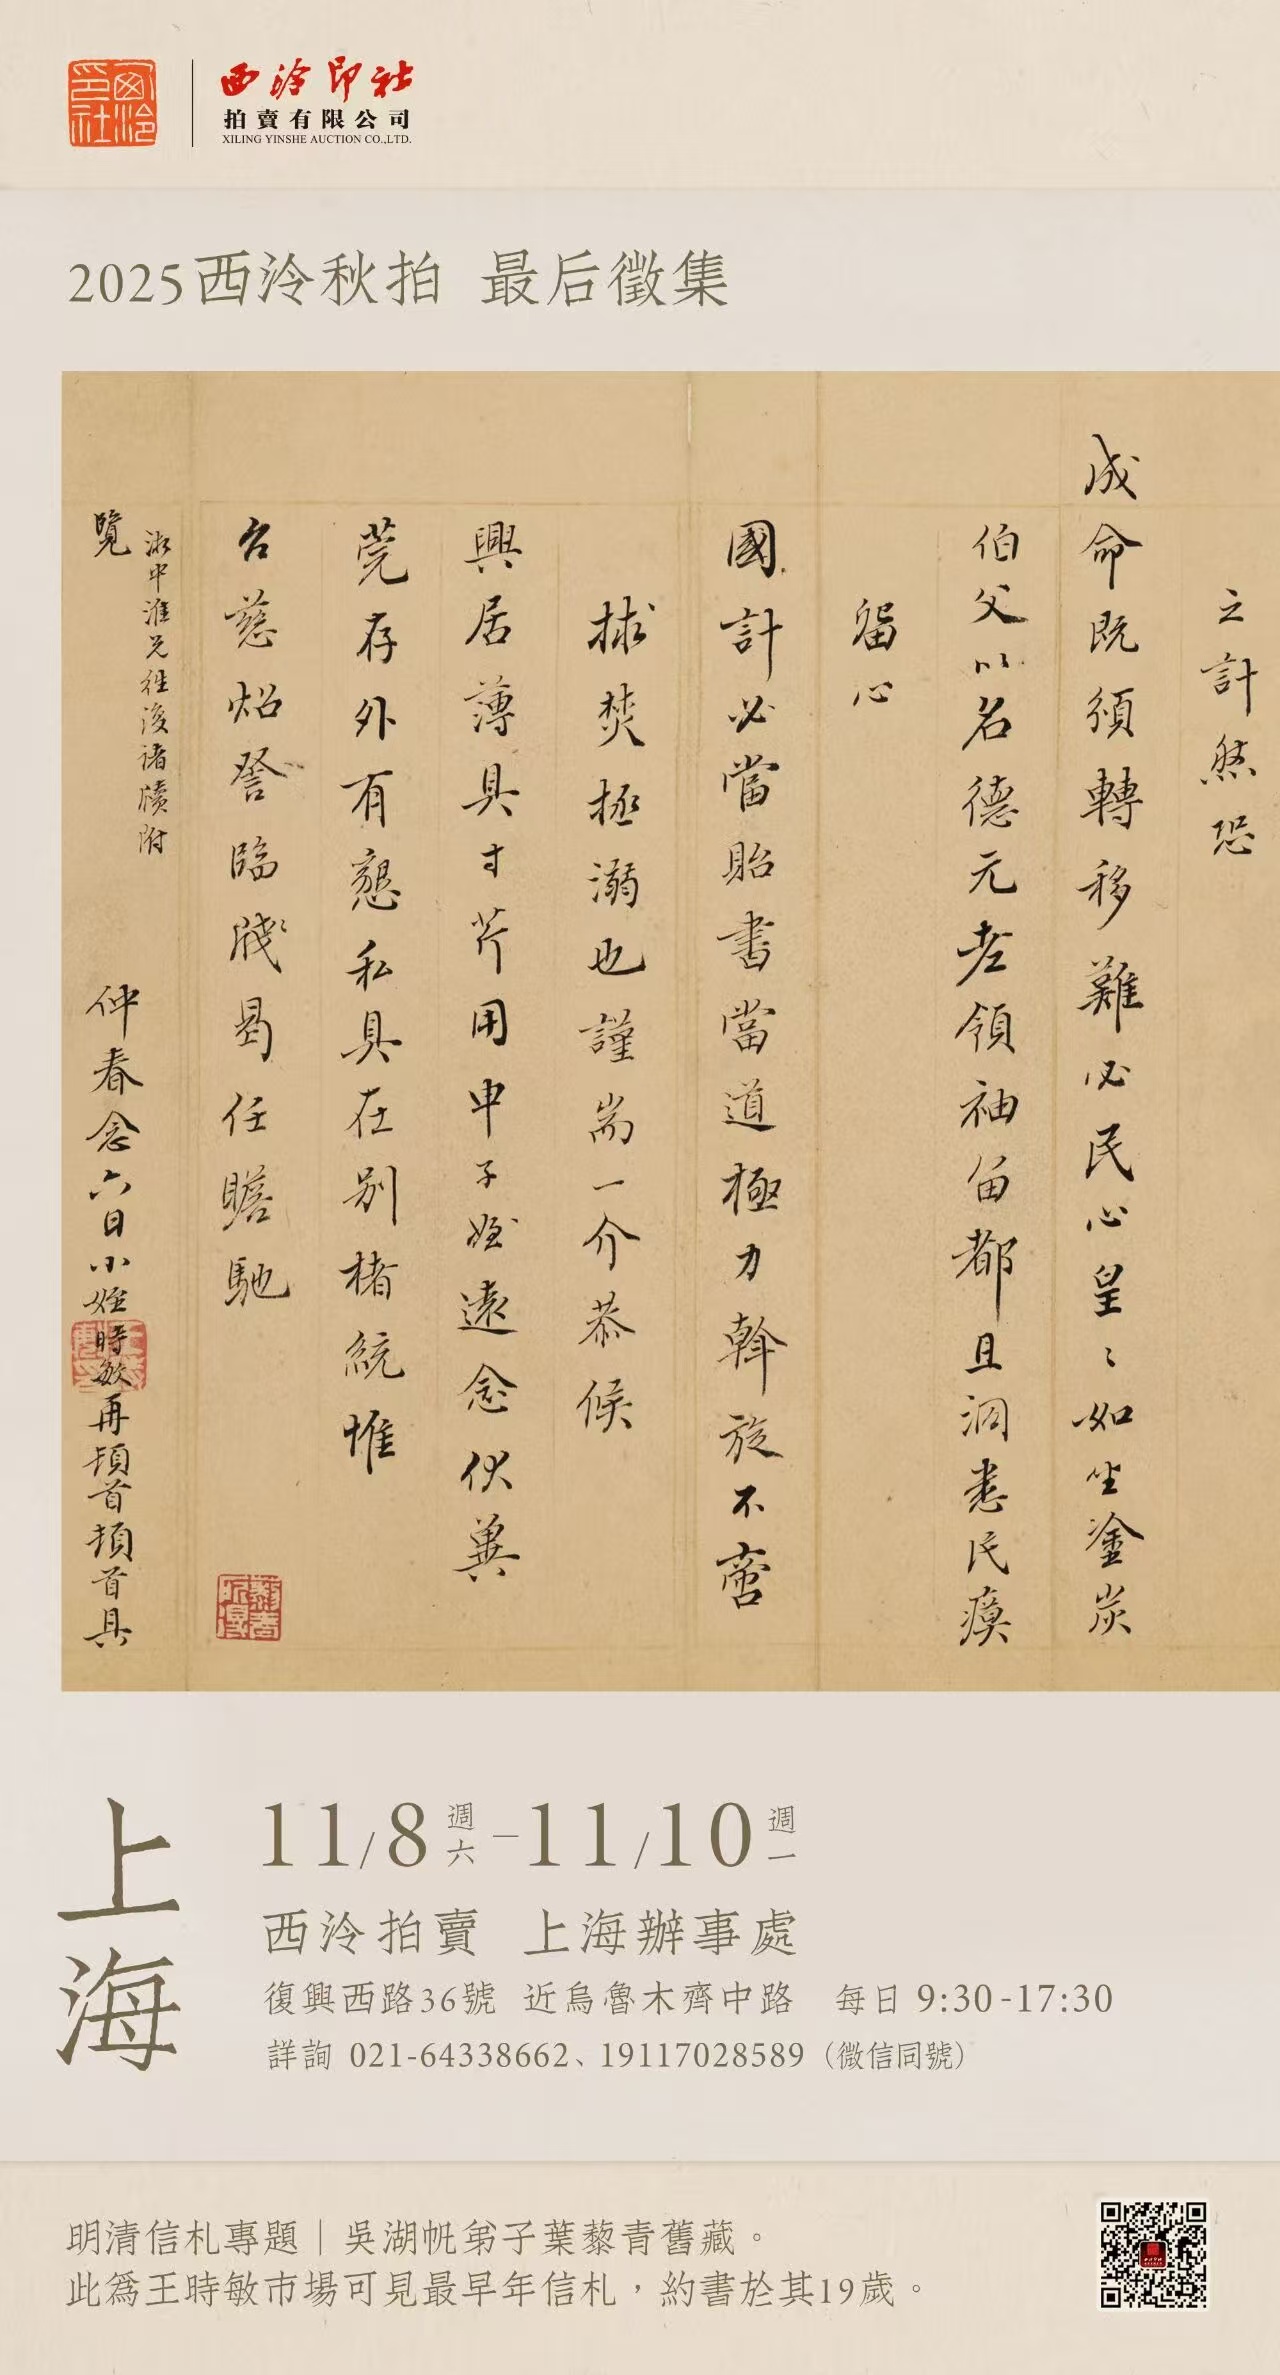 西泠印社
西泠印社
拍賣有限公司
XILING YINSHE AUCTION CO.,LTD.
2025西泠秋拍 最后徵集
之計然恐
成命既頒轉移難必民心皇〻如坐塗炭
伯父以名德元老領袖留都且洞悉民瘼
留心
國計必當貽書當道極力斡旋不啻
捄焚拯溺也謹耑一介恭候
興居薄具寸芹用申子姪遠念伏冀
莞存外有懇私具在別楮統惟
台慈炤詧臨牋曷任瞻馳
淮兄往後諸牘附
覽
仲春念六日小姪時敏再頓首頓首具
上海
11/8週六–11/10週一
西泠拍賣 上海辦事處
復興西路36號 近烏魯木齊中路 每日 9:30-17:30
詳詢 021-64338662、19117028589（微信同號）
明清信札專題｜吳湖帆弟子葉藜青舊藏。
此爲王時敏市場可見最早年信札，約書於其19歲。